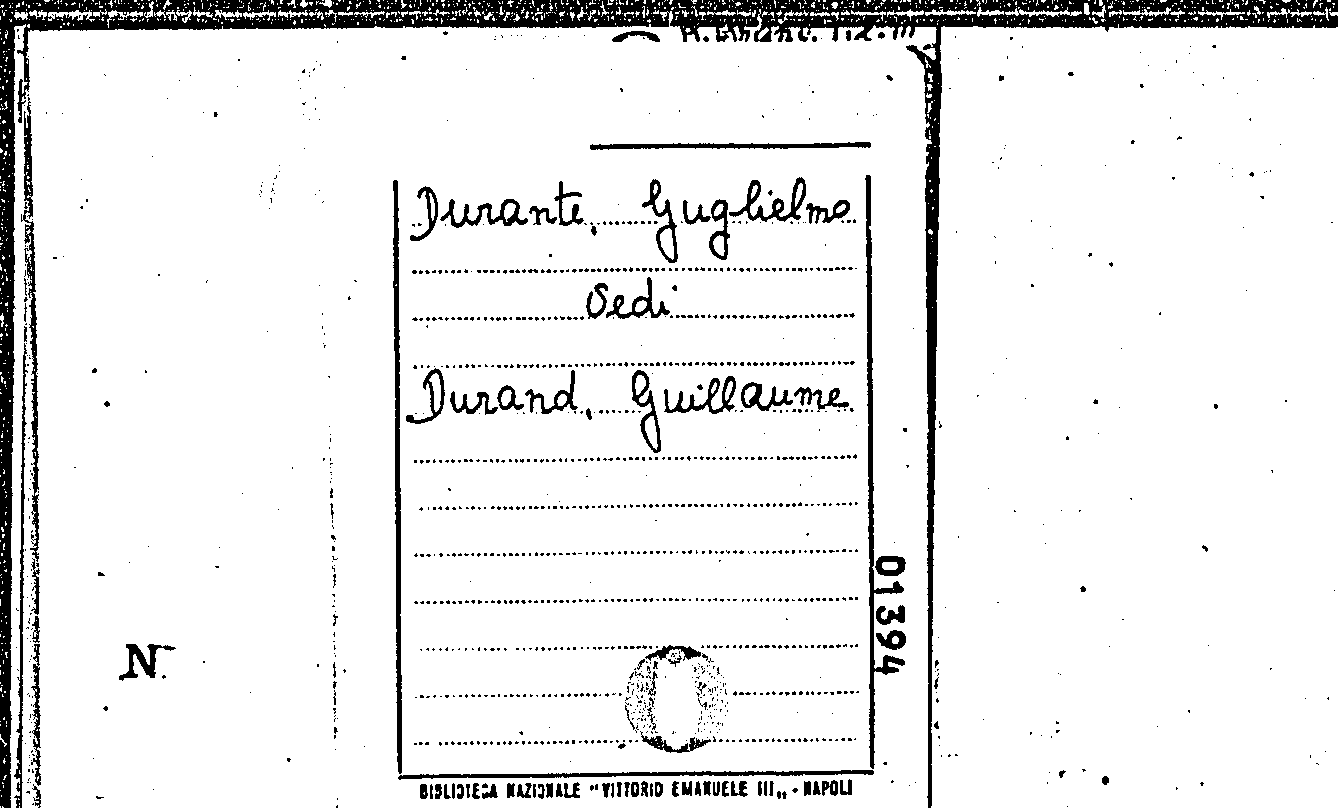 Durante, Guglielmo
Vedi
Durand, Guillaume
01394
N.
BIBLIOTECA NAZIONALE "VITTORIO EMANUELE III„ - NAPOLI